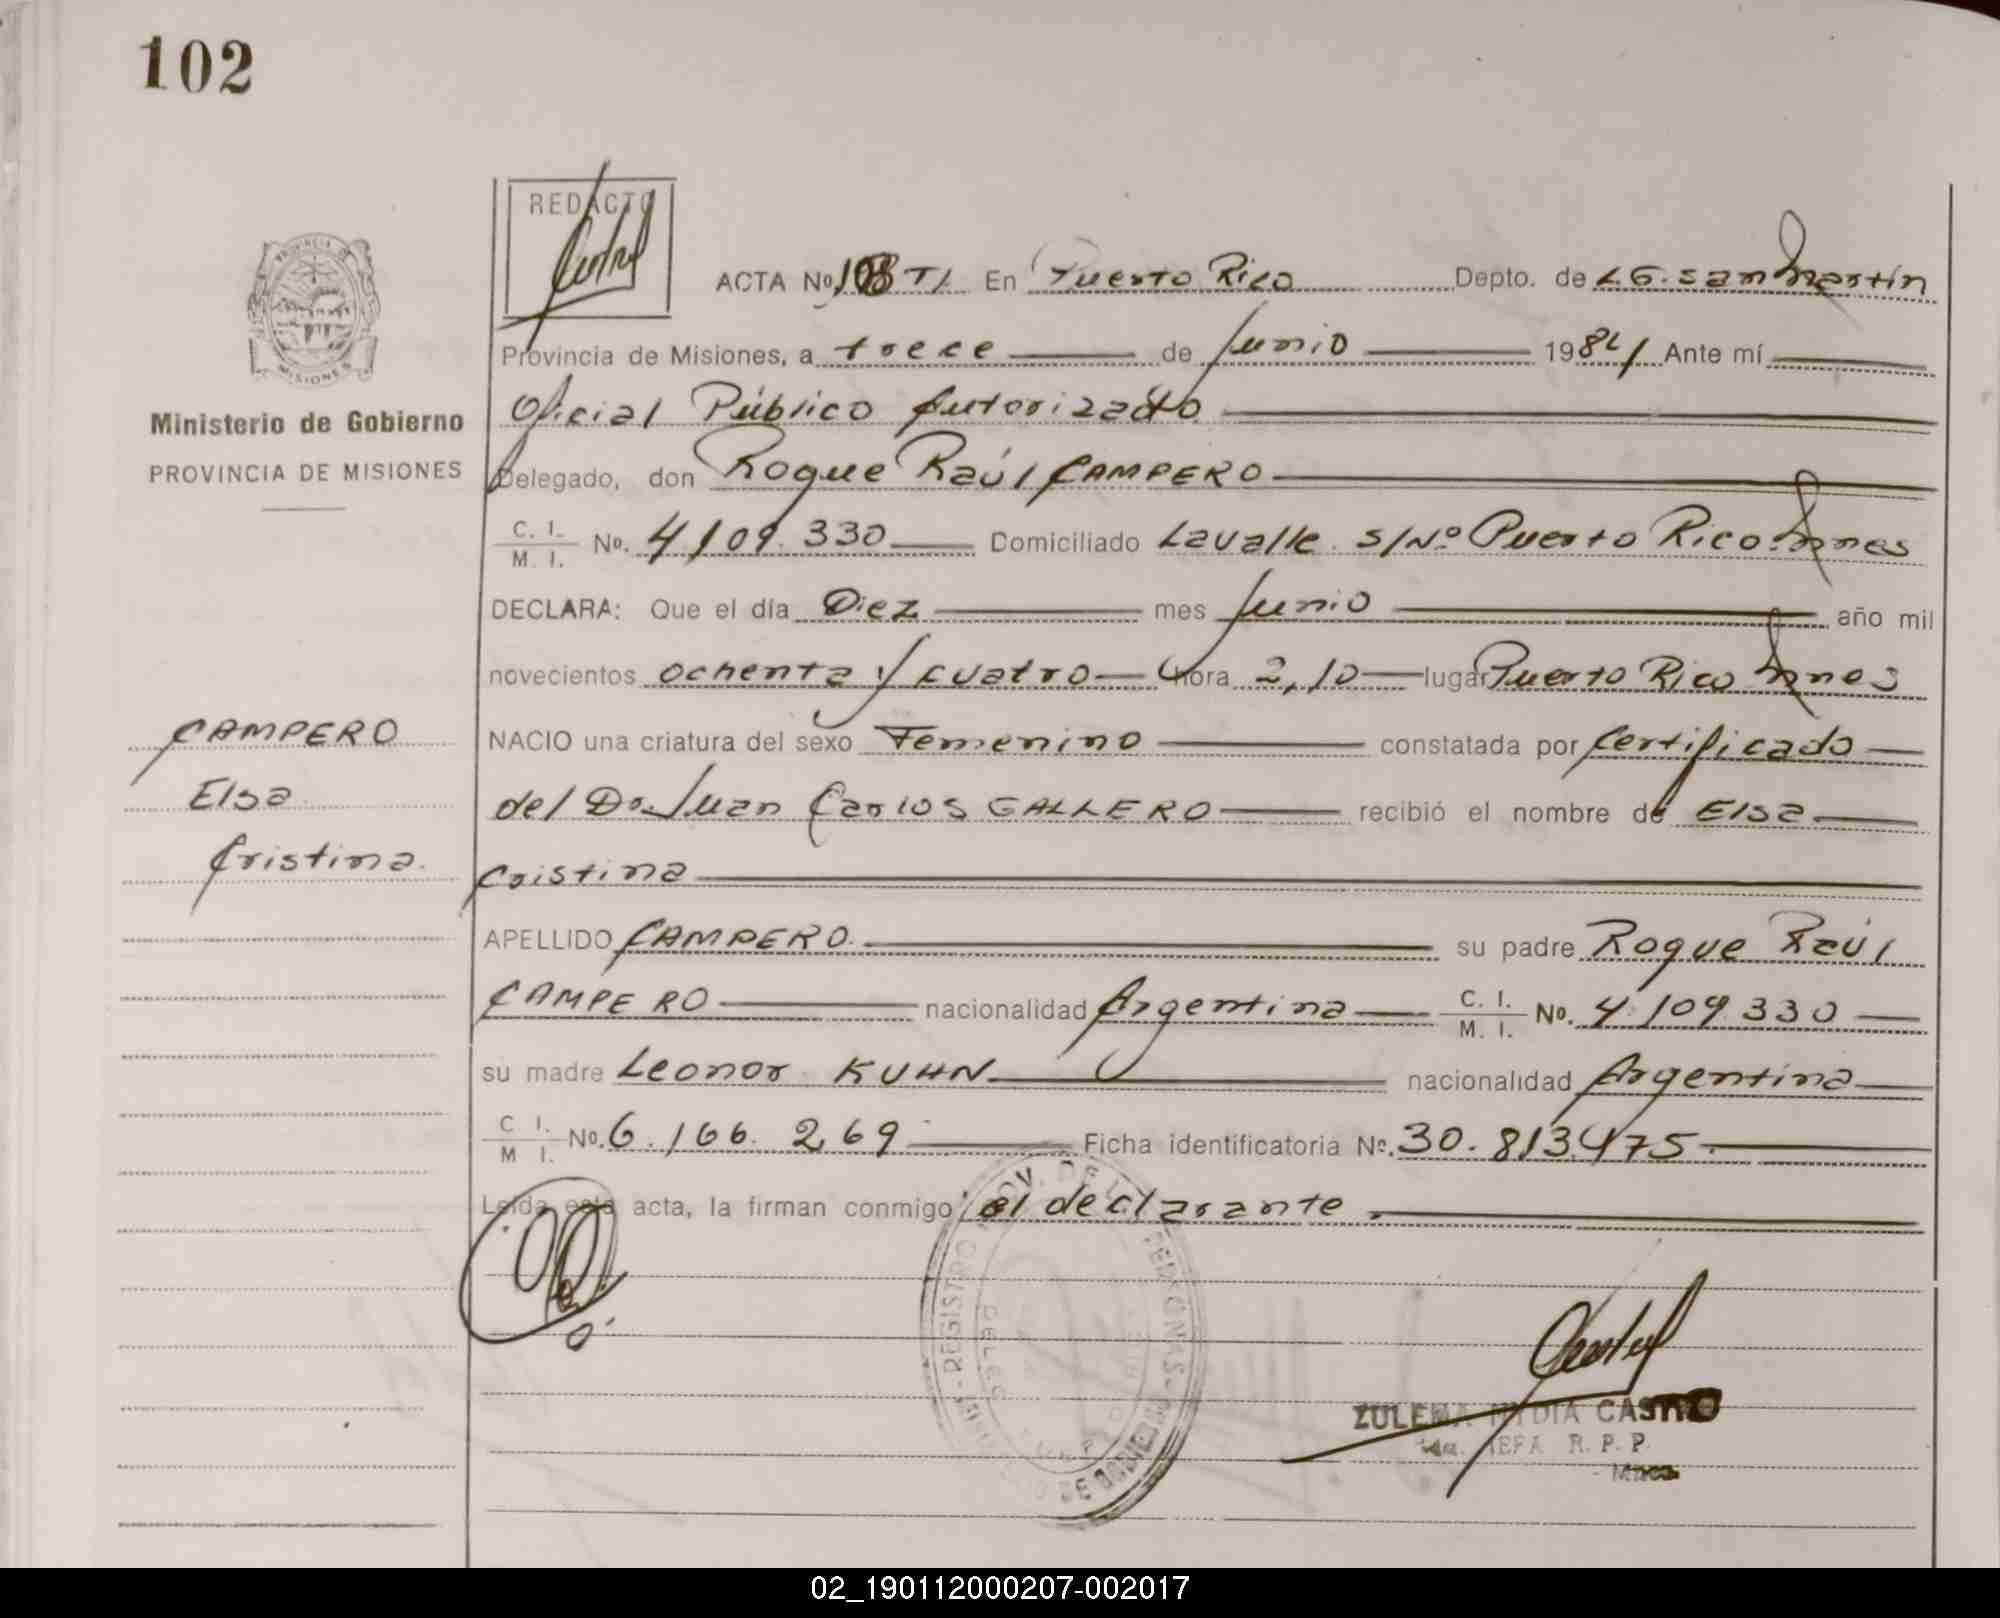 102
REDACTO
PROVINCIA DE
MISIONES
Ministerio de Gobierno
PROVINCIA DE MISIONES
ACTA No. TI En Puerto Rico Depto. de L.G. San Martín
Provincia de Misiones, a trece de Junio 1984 Ante mí
Oficial Público Autorizado
Delegado, don Roque Raúl CAMPERO
C. I.
M. I. No. 4109.330 Domiciliado Lavalle S/Nº Puerto Rico Mnes
DECLARA: Que el día Diez mes Junio año mil
novecientos ochenta y cuatro hora 2,10 lugar Puerto Rico Mnes
NACIO una criatura del sexo Femenino constatada por Certificado
del Dr. Juan Carlos GALLERO recibió el nombre de Elsa
Cristina
APELLIDO CAMPERO. su padre Roque Raúl
CAMPERO nacionalidad Argentina C. I.
M. I. No. 4.109.330
su madre Leonor KUHN nacionalidad Argentina
C. I.
M. I. No. 6.166.269 Ficha identificatoria No. 30.813.475
Leída esta acta, la firman conmigo el declarante.
CAMPERO
Elsa
Cristina.
REGISTRO PROV. DE LAS PERSONAS
ZULEMA CASTRO
JEFA R. P. P.
Mnes
02_190112000207-002017